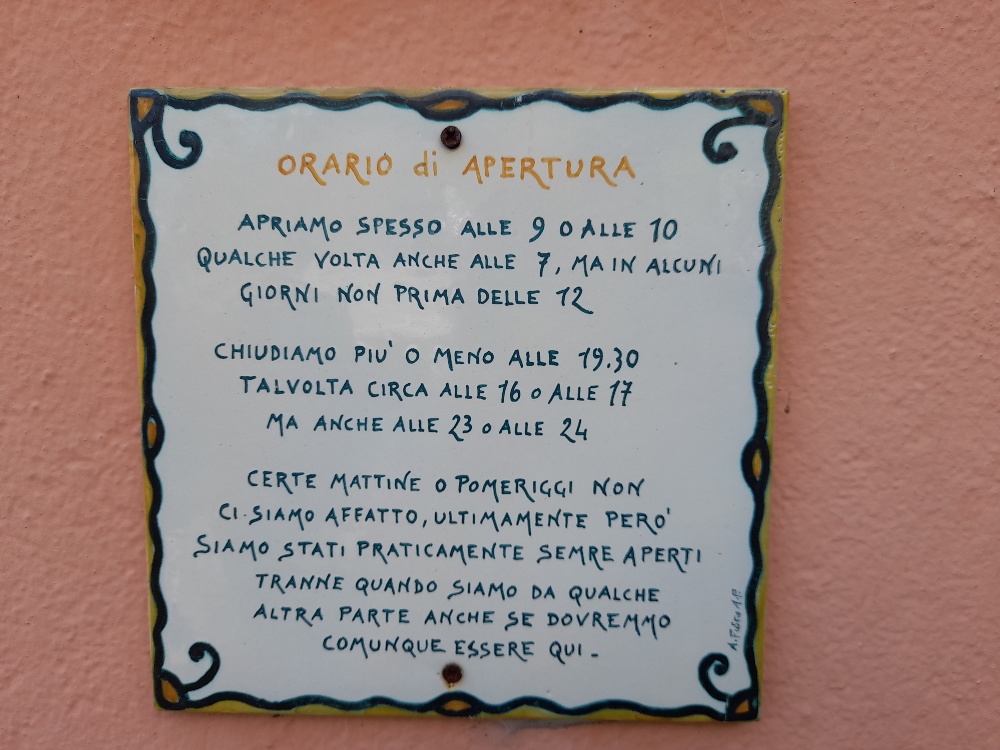 ORARIO di APERTURA
APRIAMO SPESSO ALLE 9 O ALLE 10
QUALCHE VOLTA ANCHE ALLE 7, MA IN ALCUNI
GIORNI NON PRIMA DELLE 12
CHIUDIAMO PIU' O MENO ALLE 19.30
TALVOLTA CIRCA ALLE 16 O ALLE 17
MA ANCHE ALLE 23 O ALLE 24
CERTE MATTINE O POMERIGGI NON
CI SIAMO AFFATTO, ULTIMAMENTE PERO'
SIAMO STATI PRATICAMENTE SEMRE APERTI
TRANNE QUANDO SIAMO DA QUALCHE
ALTRA PARTE ANCHE SE DOVREMMO
COMUNQUE ESSERE QUI -